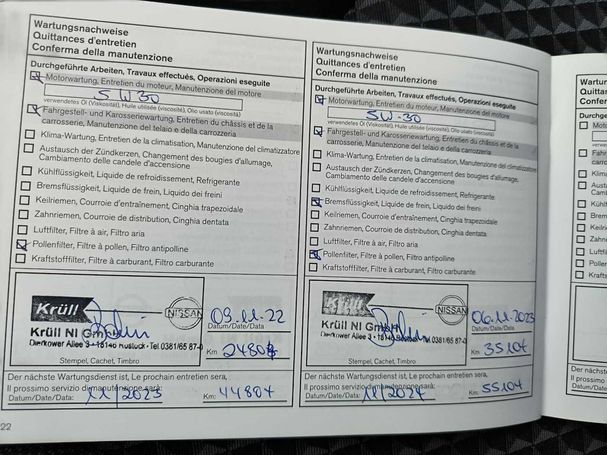 Wartungsnachweise
Quittances d'entretien
Conferma della manutenzione
Durchgeführte Arbeiten, Travaux effectués, Operazioni eseguite
Motorwartung, Entretien du moteur, Manutenzione del motore
5W30
verwendetes Öl (Viskosität), Huile utilisée (viscosité), Olio usato (viscosità)
Fahrgestell- und Karosseriewartung, Entretien du châssis et de la
carrosserie, Manutenzione del telaio e della carrozzeria
Klima-Wartung, Entretien de la climatisation, Manutenzione del climatizzatore
Austausch der Zündkerzen, Changement des bougies d'allumage,
Cambiamento delle candele d'accensione
Kühlflüssigkeit, Liquide de refroidissement, Refrigerante
Bremsflüssigkeit, Liquide de frein, Liquido dei freini
Keilriemen, Courroie d'entraînement, Cinghia trapezoidale
Zahnriemen, Courroie de distribution, Cinghia dentata
Luftfilter, Filtre à air, Filtro aria
Pollenfilter, Filtre à pollen, Filtro antipolline
Kraftstofffilter, Filtre à carburant, Filtro carburante
Krüll
NISSAN
Krüll NI GmbH
Dierkower Allee 3 • 18146 Rostock • Tel 0381/65 87-0
Stempel, Cachet, Timbro
09.11.22
Datum/Date/Data
Km
Der nächste Wartungsdienst ist, Le prochain entretien sera,
Il prossimo servizio di manutenzione sarà:
Datum/Date/Data: 11/2023 Km: 44807
22
Wartungsnachweise
Quittances d'entretien
Conferma della manutenzione
Durchgeführte Arbeiten, Travaux effectués, Operazioni eseguite
Motorwartung, Entretien du moteur, Manutenzione del motore
5W-30
verwendetes Öl (Viskosität), Huile utilisée (viscosité), Olio usato (viscosità)
Fahrgestell- und Karosseriewartung, Entretien du châssis et de la
carrosserie, Manutenzione del telaio e della carrozzeria
Klima-Wartung, Entretien de la climatisation, Manutenzione del climatizzatore
Austausch der Zündkerzen, Changement des bougies d'allumage,
Cambiamento delle candele d'accensione
Kühlflüssigkeit, Liquide de refroidissement, Refrigerante
Bremsflüssigkeit, Liquide de frein, Liquido dei freini
Keilriemen, Courroie d'entraînement, Cinghia trapezoidale
Zahnriemen, Courroie de distribution, Cinghia dentata
Luftfilter, Filtre à air, Filtro aria
Pollenfilter, Filtre à pollen, Filtro antipolline
Kraftstofffilter, Filtre à carburant, Filtro carburante
Krüll
NISSAN
Krüll NI GmbH
Dierkower Allee 3 • 18146 Rostock • Tel 0381/65 87-0
Stempel, Cachet, Timbro
06.11.2023
Datum/Date/Data
Km 35104
Der nächste Wartungsdienst ist, Le prochain entretien sera,
Il prossimo servizio di manutenzione sarà:
Datum/Date/Data: 11/2024 Km: 55104